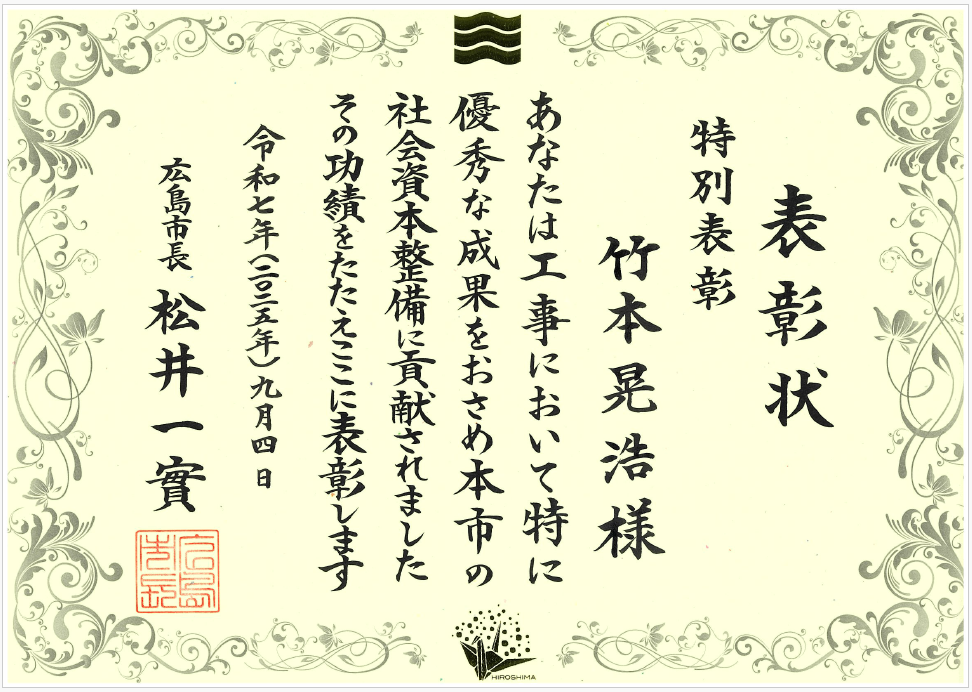 表彰状
特別表彰
竹本晃浩様
あなたは工事において特に
優秀な成果をおさめ本市の
社会資本整備に貢献されました
その功績をたたえここに表彰します
令和七年(二〇二五年)九月四日
広島市長 松井一實
広島
市長
HIROSHIMA